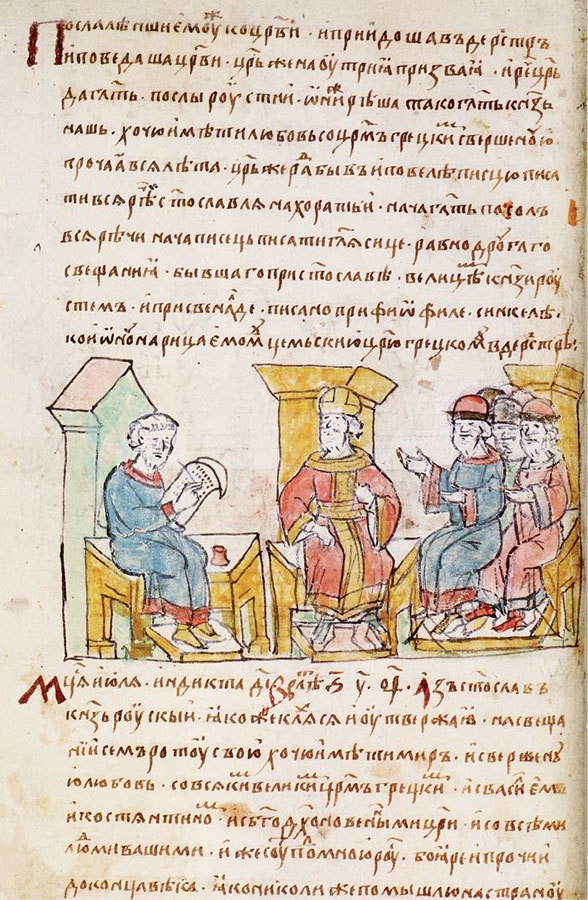 Посла лѣпшиѣ моуⷤ ко цр҃ви · и приидоша в ъдерⷭ҇тръ
и поведаша цр҃ви · цр҃ь же наоутриꙗ призва ꙗ · и рⷱ҇е цр҃ь
да гл҃ть · послы роустии · ѡниⷤ рѣша тако гл҃ть кнз҃ь
нашь · хочю имѣти любовь со цр҃мъ грецкиⷨ свершеноую
прочаа вся лѣта · цр҃ь же раⷣ бывъ и повелѣ писцю писа
ти вся рѣⷱ҇ ст҃ославля на хоратьи · нача гл҃ть посолъ
вся рѣчи нача писець писати гл҃я сице · равно дроуг҃аго
свещаниꙗ · бывшаго при ст҃ославѣ · велицѣⷨ кнз҃и роу
стемъ · и при свенаⷧде · писано при фиѡфиле · синкелѣ·
ко иѡноу нарицаемоⷨ цемьскии цр҃ю грецкомоу въ дерⷭ҇трѣ ·
Мцⷭ҇а июля · индикта д҃і в лѣⷮ ҂ѕ҃ у҃ ѻ҃ѳ · Азъ ст҃ославъ
кнз҃ь роускыи · ꙗко же кляся и оутвержаю · на свеща
нии семъ ротоу свою хочю имѣти миръ · и свершену
ю любовь · со всякиⷨ великиⷨ цр҃мъ грецкиⷨ · и с васиⷧемъ
и костянтиноⷨ · и съ бг҃одх҃новеными цр҃и · и со всѣми
люⷣми вашими · иже соуⷮ поⷣ мною роуⷭ · бояре и прочии
до конца вѣка · ꙗко николи же помышлю на страноу